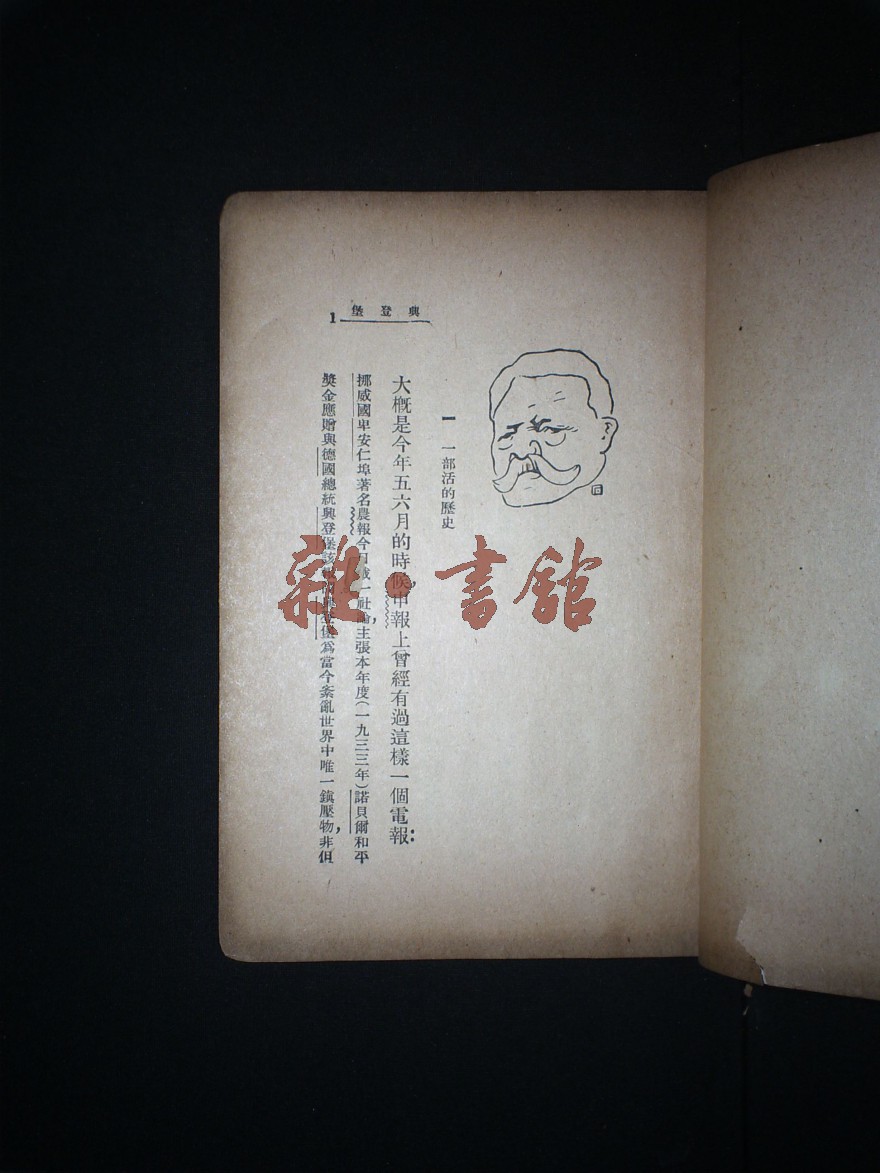 興登堡
1
一 一部活的歷史
大概是今年五六月的時候，申報上曾經有過這樣一個電報：
挪威國卑安仁埠著名農報今日載一社論，主張本年度（一九三三年）諾貝爾和平
獎金應贈與德國總統興登堡該報謂興登堡為當今紊亂世界中唯一鎮壓物，非但
雜·書館